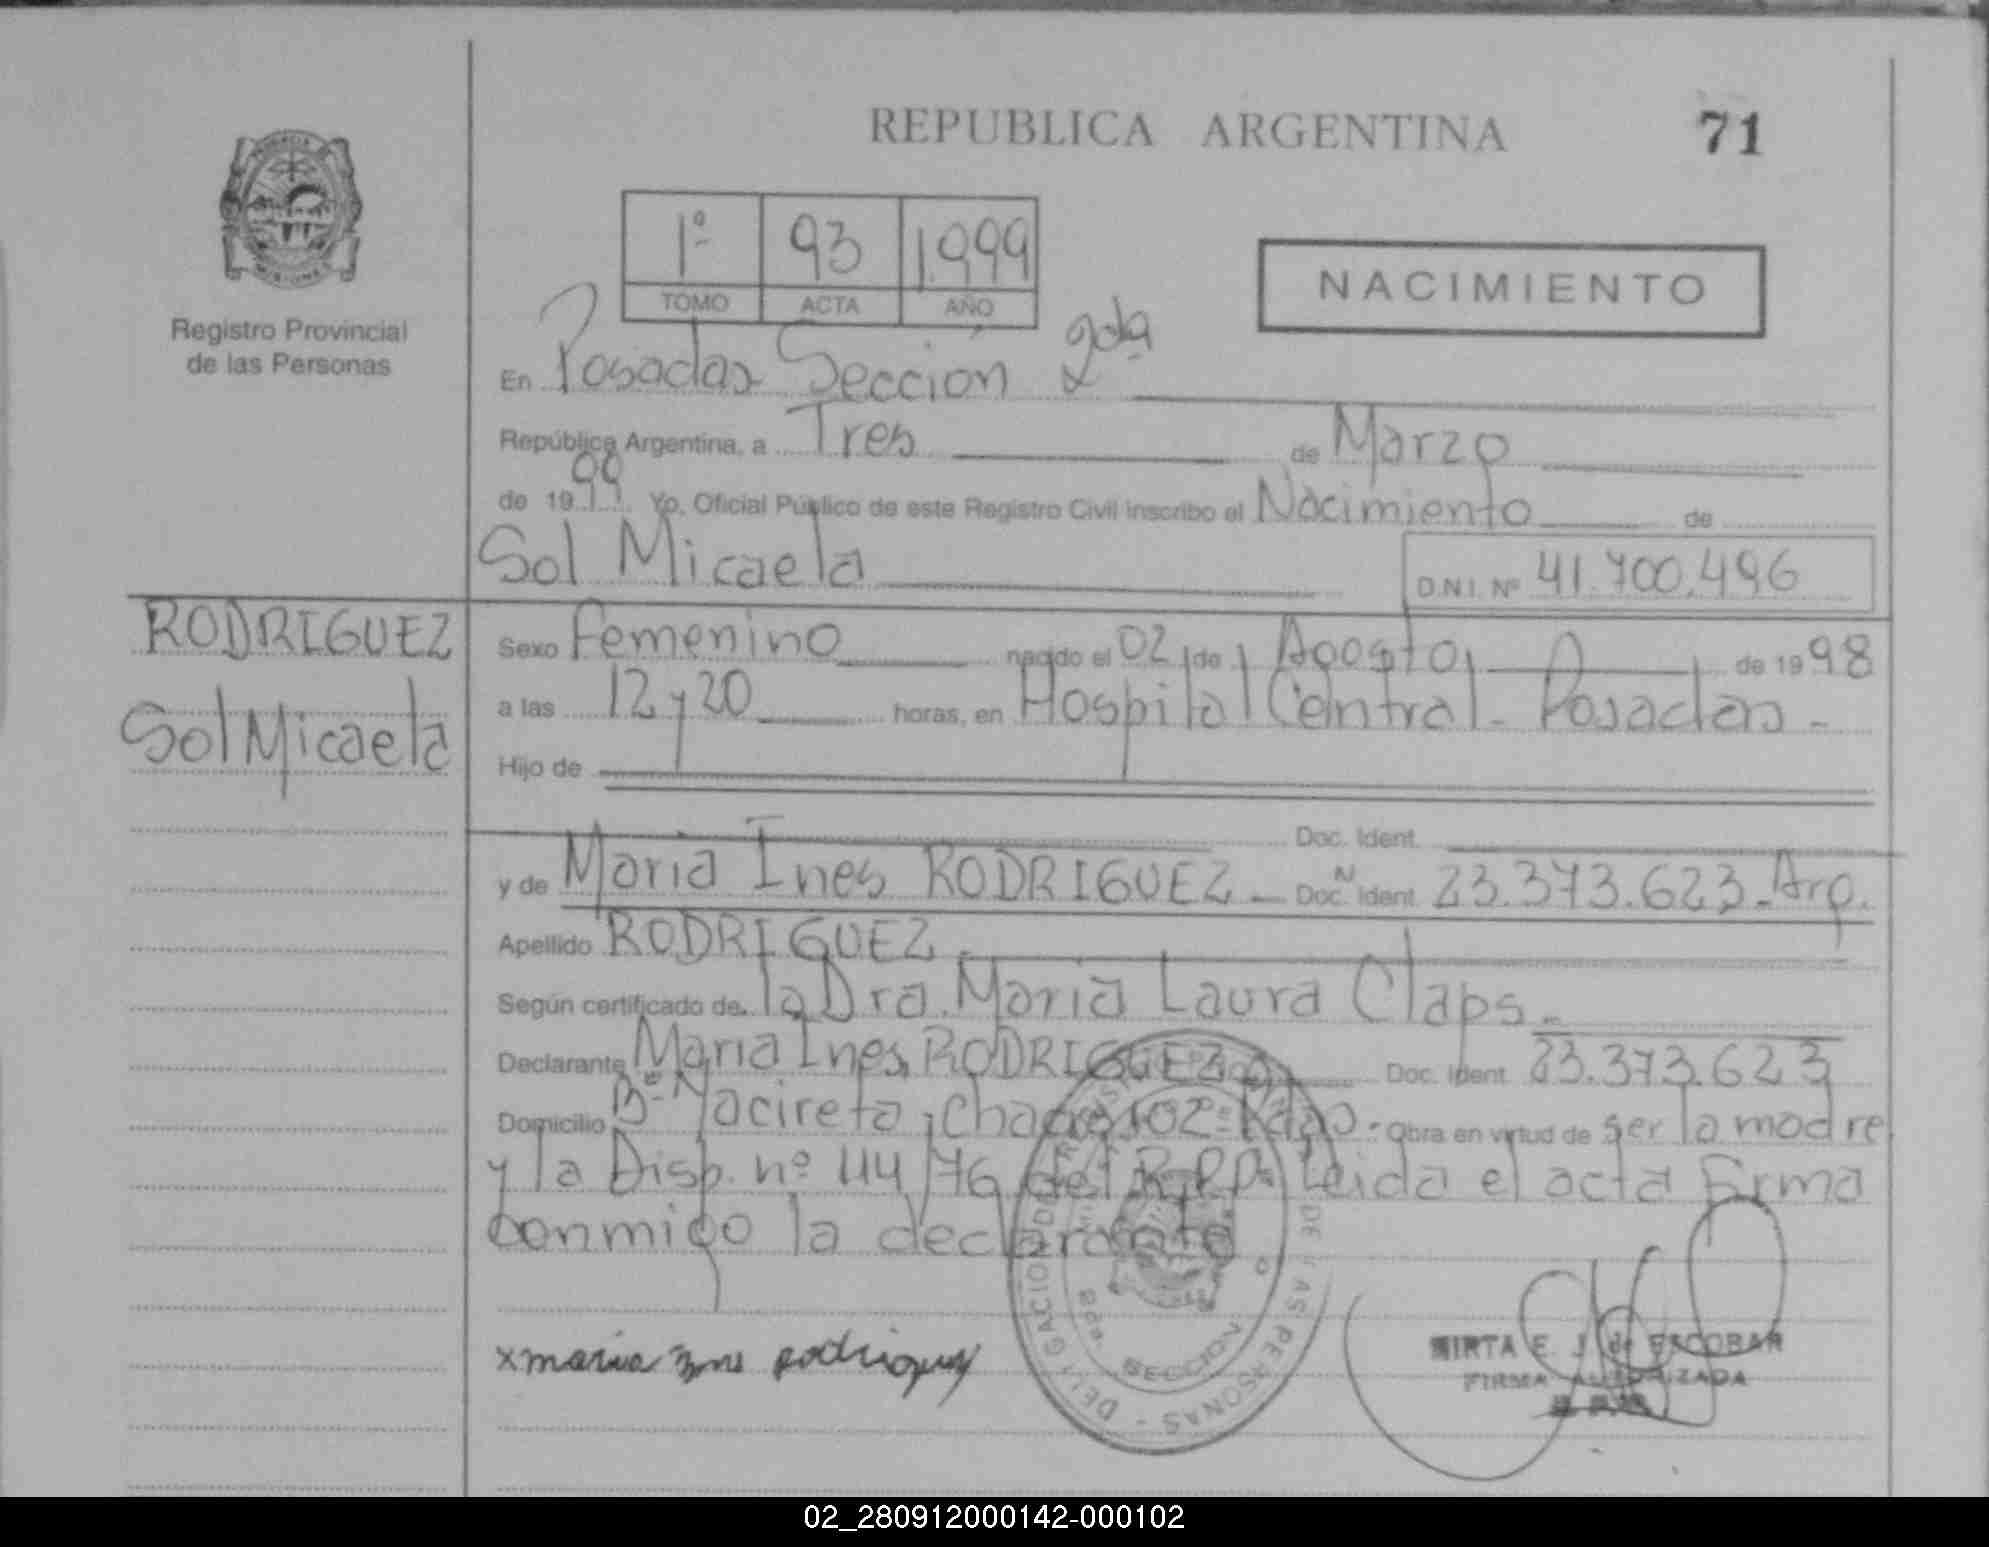 REPUBLICA ARGENTINA
71
1º 93 1.999
TOMO ACTA AÑO
NACIMIENTO
Registro Provincial
de las Personas
En Posadas Sección 2da
República Argentina, a Tres de Marzo
de 1999. Yo, Oficial Público de este Registro Civil inscribo el Nacimiento de
Sol Micaela D.N.I. Nº 41.700.496
RODRIGUEZ
Sol Micaela
Sexo Femenino nacido el 02 de Agosto de 1998
a las 12 y 20 horas, en Hospital Central - Posadas -
Hijo de
Doc. Ident.
y de Maria Ines RODRIGUEZ - Doc. Ident. 23.373.623 - Arg.
Apellido RODRIGUEZ
Según certificado de la Dra. Maria Laura Claps -
Declarante Maria Ines RODRIGUEZ Doc. Ident. 23.373.623
Domicilio Bº Yacireta, 102 - Obra en virtud de ser la madre
y la Disp. nº 44/76 del R.P.P. Leida el acta firma
conmigo la declarante
x maria ines rodriguez
MIRTA E. J. de ESCOBAR
FIRMA AUTORIZADA
DELEGACION SECCION DE LAS PERSONAS
02_280912000142-000102